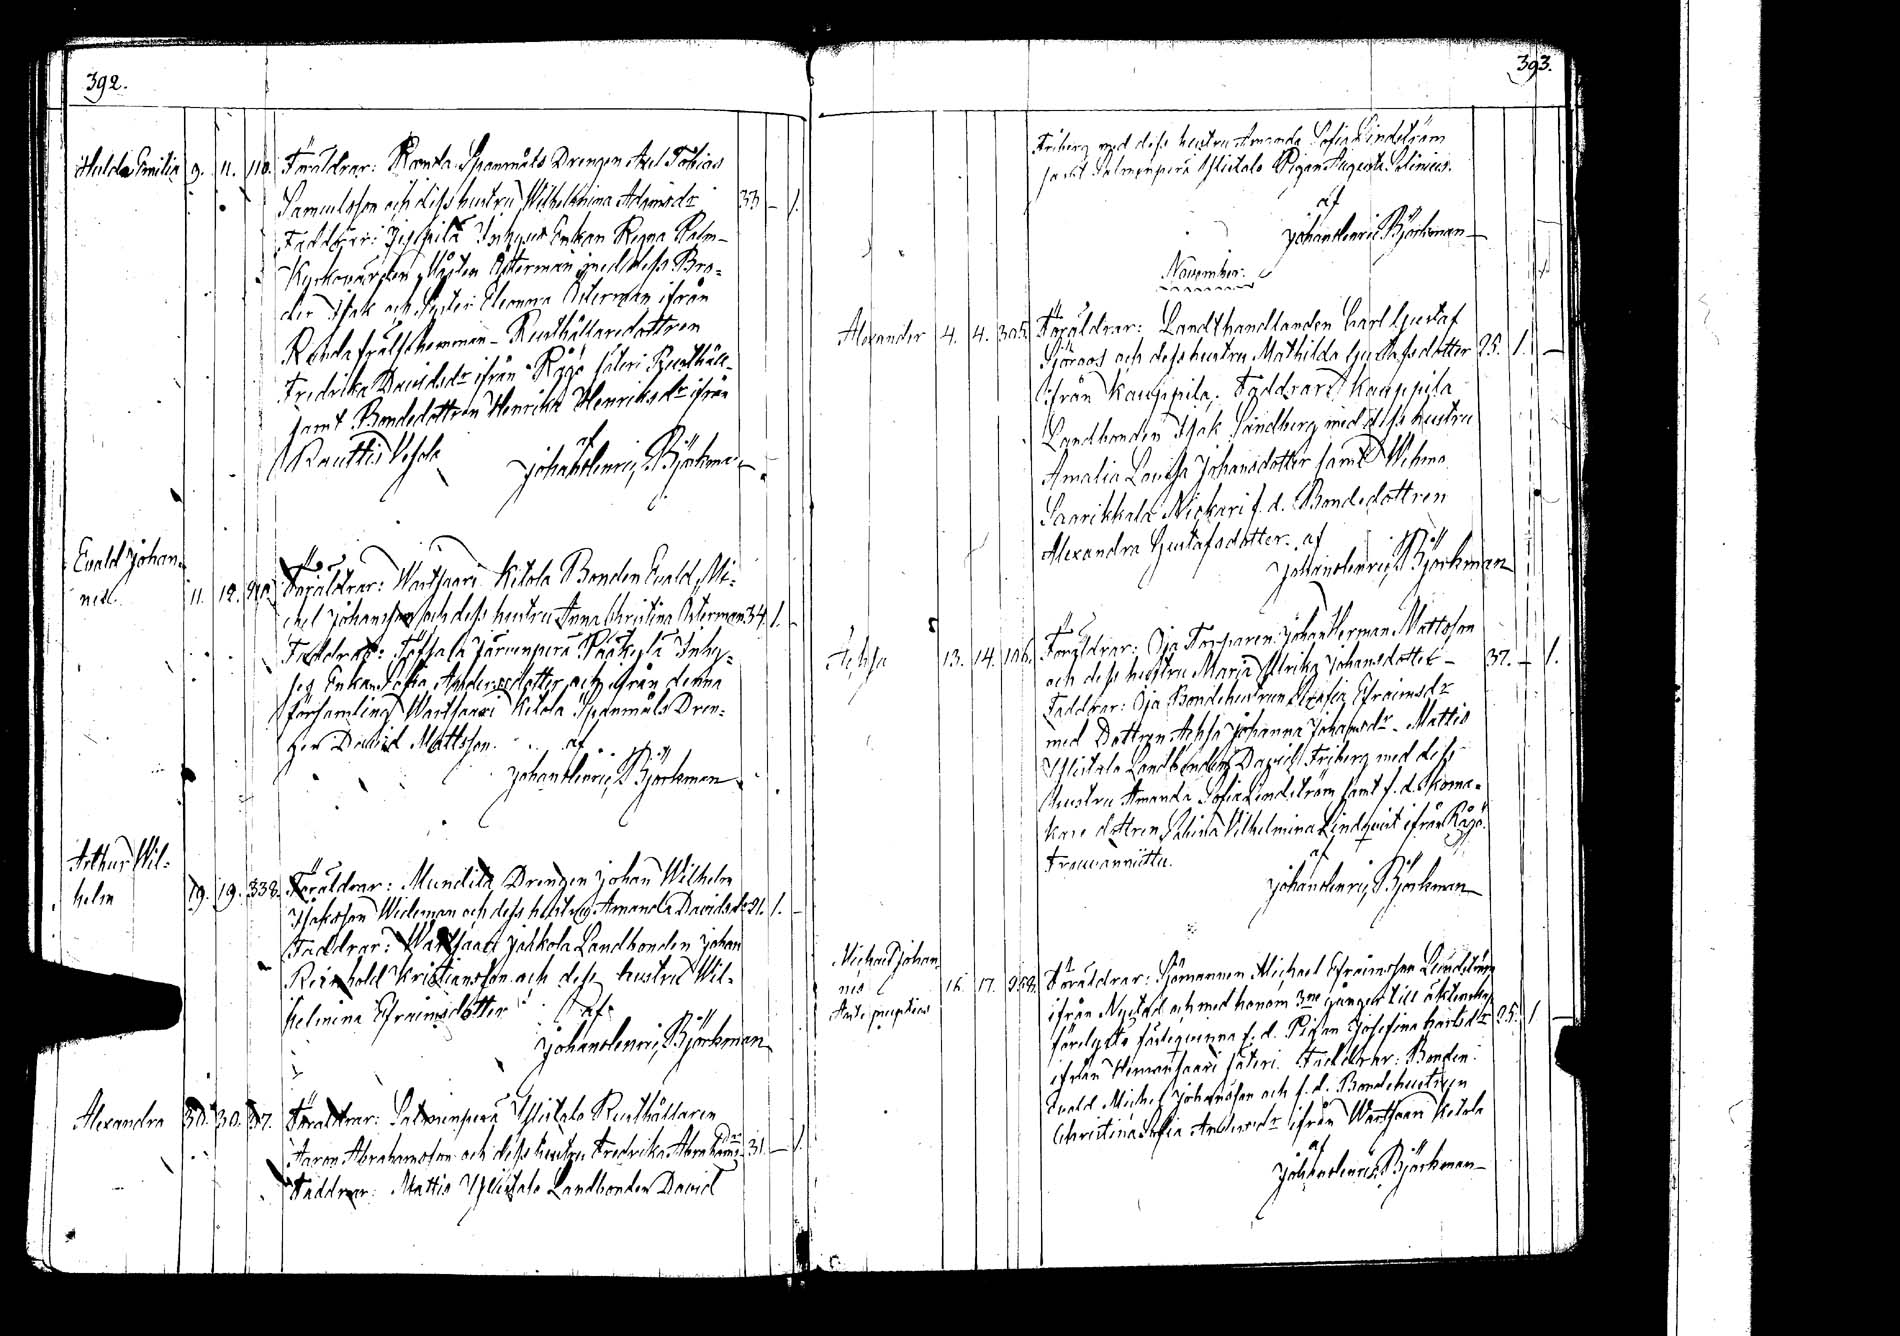 392.
Hulda Emilia 9. 11. 110. Föräldrar: Ronda Spannmåls Drengen Axel Tobias
Samuelsson och dess hustru Wilhelmina Adamsdr 33 – 1.
Faddrar: Inhyses Enkan Regna Palm-
Kyrkovärden Österman med dess Bro-
der Isak och Syster Eleonora Österman ifrån
Ronda frälsehemman – Rusthållaredottren
Fredrika Davidsdr ifrån Rågö säteri Rusthåll-
samt Bondedottren Henrika Henriksdr ifrån
Rauttis Vesola af
Johan Henric Björkman
Evald Johan-
nes. 11. 12. Föräldrar: Wartsaari Kitola Bonden Evald Mi-
chel Johansson och dess hustru Anna Christina Österman 34. 1. –
Faddrar: Töfsala Järvenperä Inhy-
ses Enkan Sofia Andersdotter och ifrån denna
församling Wartsaari Kitola Spanmåls Dren-
gen David Mattsson. af
Johan Henric Björkman
Arthur Wil-
helm 19. 19. 338. Föräldrar: Drengen Johan Wilhelm
Isaksson Wideman och dess hustru Amanda Davidsdr 21. 1. –
Faddrar: Wartsaari Jokkola Landbonden Johan
Reinhold Kristiansson och dess hustru Wil-
helmina Efraimsdotter af
Johan Henric Björkman
Alexandra 30. 30. Föräldrar: Salmenperä Ylistalo Rusthållaren
Aaron Abrahamsson och dess hustru Fredrika Abrahamsdr 31. – 1.
Faddrar: Mattis Ylistalo Landbonden David
393.
Friberg med dess hustru Amanda Sofia Lindström
samt Salmenperä Ylistalo Pigan Augusta Selinius.
af
Johan Henric Björkman
November.
Alexander 4. 4. 305. Föräldrar: Landthandlanden Carl Gustaf
Sjöroos och dess hustru Mathilda Gustafsdotter 25. 1. –
ifrån Kauppila. Faddrar: Kauppila
Landbonden Isak Sandberg med dess hustru
Amalia Lovisa Johansdotter samt Wehmo
Saarikkala Nickari f. d. Bondedottren
Alexandra Gustafsdotter. af
Johan Henric Björkman
Achsa 13. 14. 106. Föräldrar: Oja Torparen Johan Herman Mattsson
och dess hustru Maria Ulrika Johansdotter – 37. – 1.
Faddrar: Oja Bondehustrun Efraimsdr
med Dottren Achsa Johanna Johansdr. Mattis
Ylistalo Landbonden David Friberg med dess
hustru Amanda Sofia Lindström samt f. d. Skoma-
kare dottren Sabina Vilhelmina Lindqvist ifrån Rågö

af
Johan Henric Björkman
Michael Johan-
nes 16. 17. 258. Föräldrar: Sjömannen Michael Efraimsson Lindström
ifrån Nystad och med honom 3ne gånger till äktenskap
förelysta fästeqvinna f. d. Pigan Josefina Karlsdr 25. 1 –
ifrån Hermansaari säteri. Faddrar: Bonden
Evald Michel Johansson och f. d. Bondehustrun
Christina Sofia Andersdr ifrån Wartsaari Kitola
af
Johan Henric Björkman